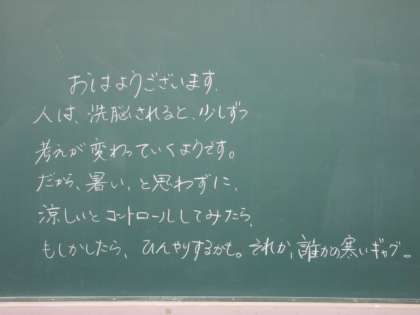 おはようございます、
人は、洗脳されると、少しずつ
考えが変わっていくようです。
だから、暑い、と思わずに、
涼しいとコントロールしてみたら、
もしかしたら、ひんやりするかも。それか、誰かの寒いギャグ。